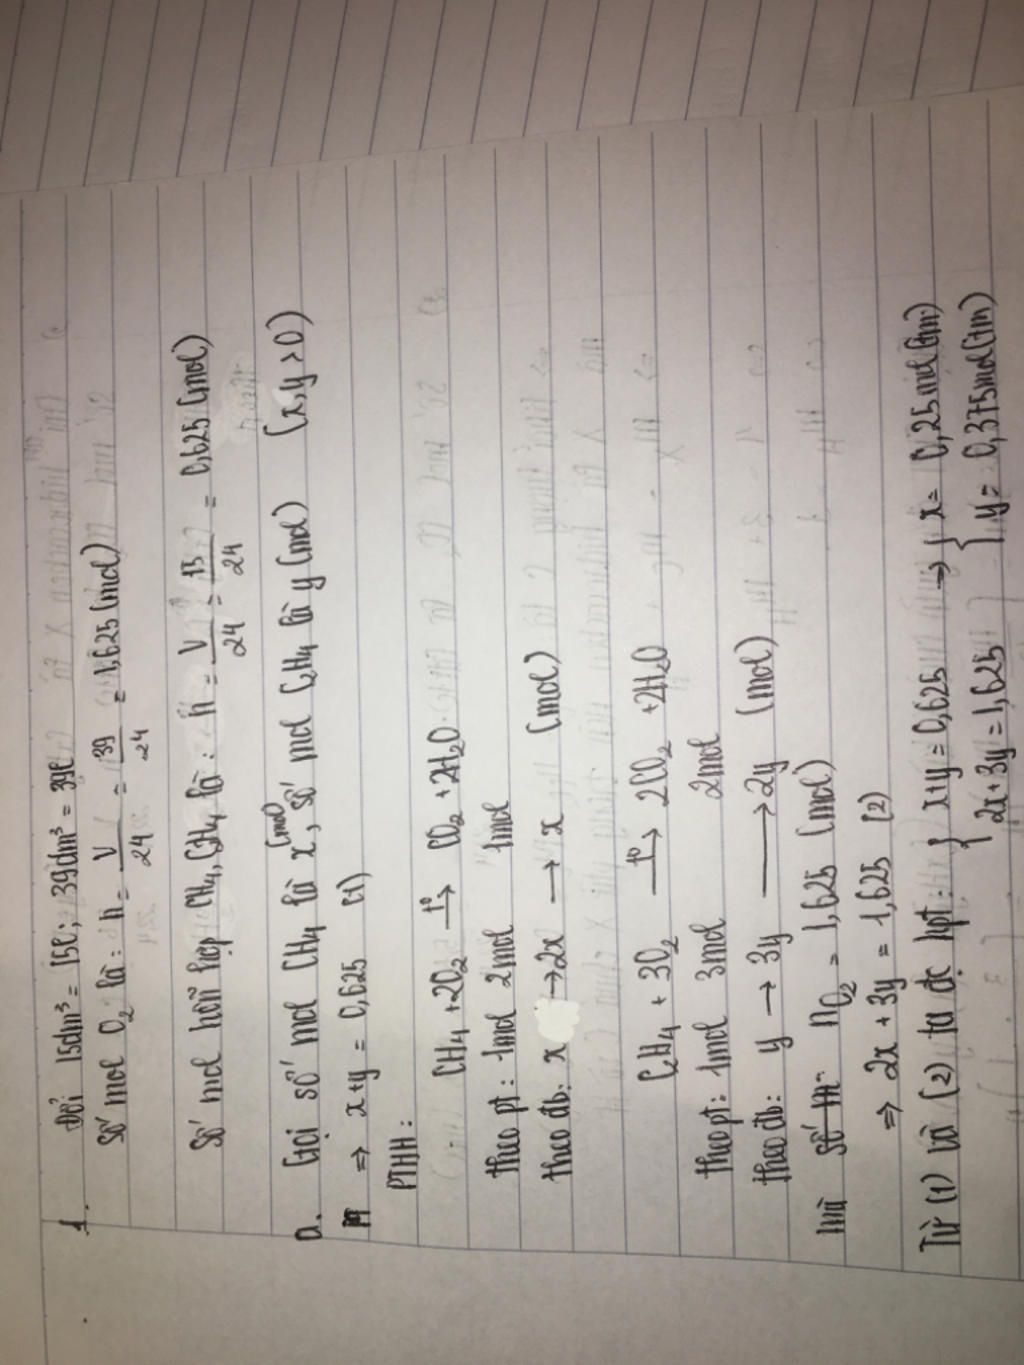 1. Đổi 15dm³ = 15l; 39dm³ = 39l
Số mol O₂ là: n = V/24 = 39/24 = 1,625 (mol)
Số mol hỗn hợp CH₄, C₂H₄ là: n = V/24 = 15/24 = 0,625 (mol)
a. Gọi số mol CH₄ là x (mol), số mol C₂H₄ là y (mol) (x,y > 0)
⇒ x+y = 0,625 (1)
PTHH:
CH₄ + 2O₂ –t°→ CO₂ + 2H₂O
theo pt: 1mol 2mol 1mol
theo đb: x → 2x → x (mol)
C₂H₄ + 3O₂ –t°→ 2CO₂ + 2H₂O
theo pt: 1mol 3mol 2mol
theo đb: y → 3y → 2y (mol)
mà số m nO₂ = 1,625 (mol)
⇒ 2x + 3y = 1,625 (2)
Từ (1) và (2) ta đc hpt: { x+y = 0,625 → { x = 0,25 mol (tm)
{ 2x + 3y = 1,625 { y = 0,375mol (tm)